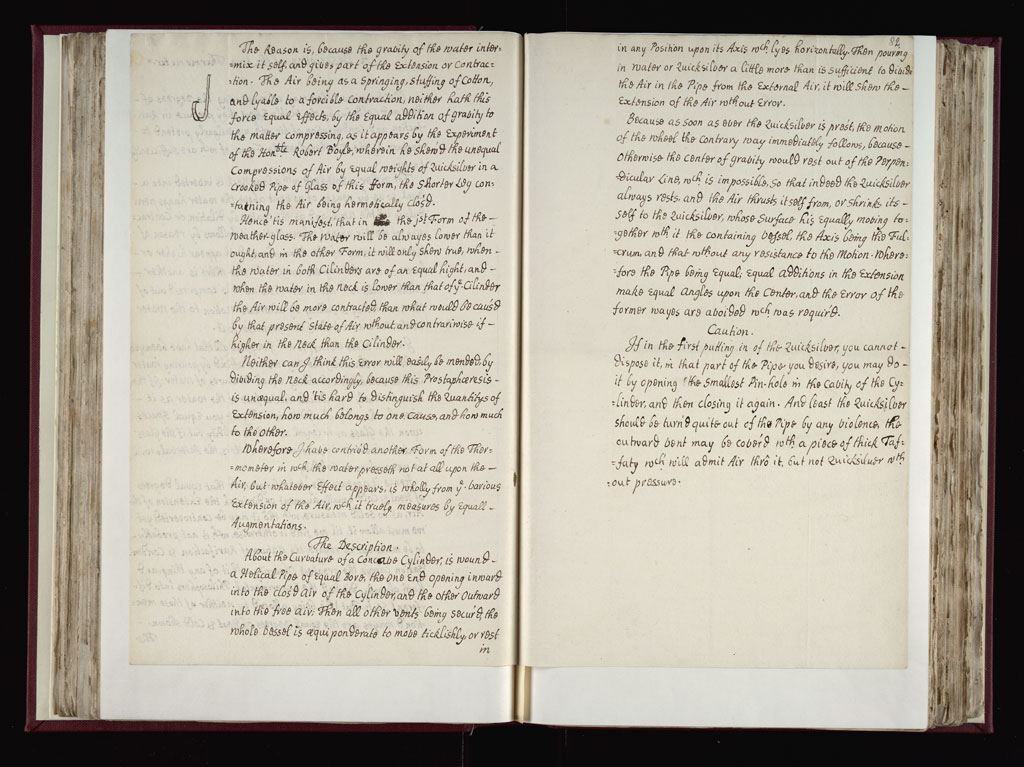 The Reason is, because the gravity of the water inter=
=mix it self, and gives part of the Extension or Contrac=
=tion. The Air being as a Springing, stuffing of Cotton,
and lyable to a forcible Contraction, neither hath this
force Equal Effects, by the Equal addition of gravity to
the matter compressing, as it appears by the Experiment
of the Honble Robert Boyle, wherein he shew'd the unequal
Compressions of Air by Equal weights of Quicksilver in a
crooked Pipe of Glass of this Form, the Shorter Leg con=
=taining the Air being hermetically clos'd.
Hence 'tis manifest, that in the 1st Form of the -
weather-glass. The water will be alwayes lower than it
ought, and in the other Form, it will only shew true, when -
the water in both Cilinders are of an Equal hight, and -
when the water in the neck is lower than that of ye Cilinder
the Air will be more contracted, than what would be caus'd
by that present State of Air wthout, and contrariwise if -
higher in the Neck than the Cilinder.
Neither can I think this Error will easily be mended, by
dividing the Neck accordingly, because this Prostaphæresis -
is unæqual, and 'tis hard to distinguish the Quantitys of
Extension, how much belongs to one Cause, and how much
to the other.
Wherefore I have contriv'd another Form of the Ther=
=mometer in wch the water presseth not at all upon the -
Air, but whatever Effect appears, is wholly from ye Various
Extension of the Air, wch it truely measures by Equall -
Augmentations.
The Description.
About the Curvature of a Concave Cylinder, is wound -
a Helical Pipe of Equal Bore, the one End opening inward
into the clos'd Air of the Cylinder, and the other Outward
into the free Air: Then all other Vents being secur'd, the
whole Vessel is æquiponderate to move ticklishly, or rest
in
82
in any Position upon its Axis wch lyes horizontally. Then pouring
in water or Quicksilver a little more than is sufficient to divide
the Air in the Pipe from the External Air, it will shew the -
Extension of the Air without Error.
Because as soon as ever the Quicksilver is prest, the motion
of the wheel the contrary way immediately follows, because -
otherwise the Center of gravity would rest out of the Perpen=
=dicular Line, wch is impossible, So that indeed the Quicksilver
always rests, and the Air thrusts itself from, or shrinks its -
self to the Quicksilver, whose Surface his Equally moving to=
=gether wth it the containing Vessel, the Axis being the Ful=
=crum, and that without any resistance to the Motion. Where=
=fore the Pipe being Equal, Equal additions in the Extension
make Equal Angles upon the Center, and the Error of the
former wayes are avoided wch was requir'd.
Caution.
If in the first putting in of the Quicksilver, you cannot -
dispose it, in that part of the Pipe you desire, you may do -
it by opening the Smallest Pin-hole in the Cavity of the Cy=
=linder, and then closing it again. And least the Quicksilver
should be turn'd quite out of the Pipe by any violence, the
outward vent may be cover'd wth a piece of thick Taf=
=faty wch will admit Air thrô it, but not Quicksilver wth
=out pressure.